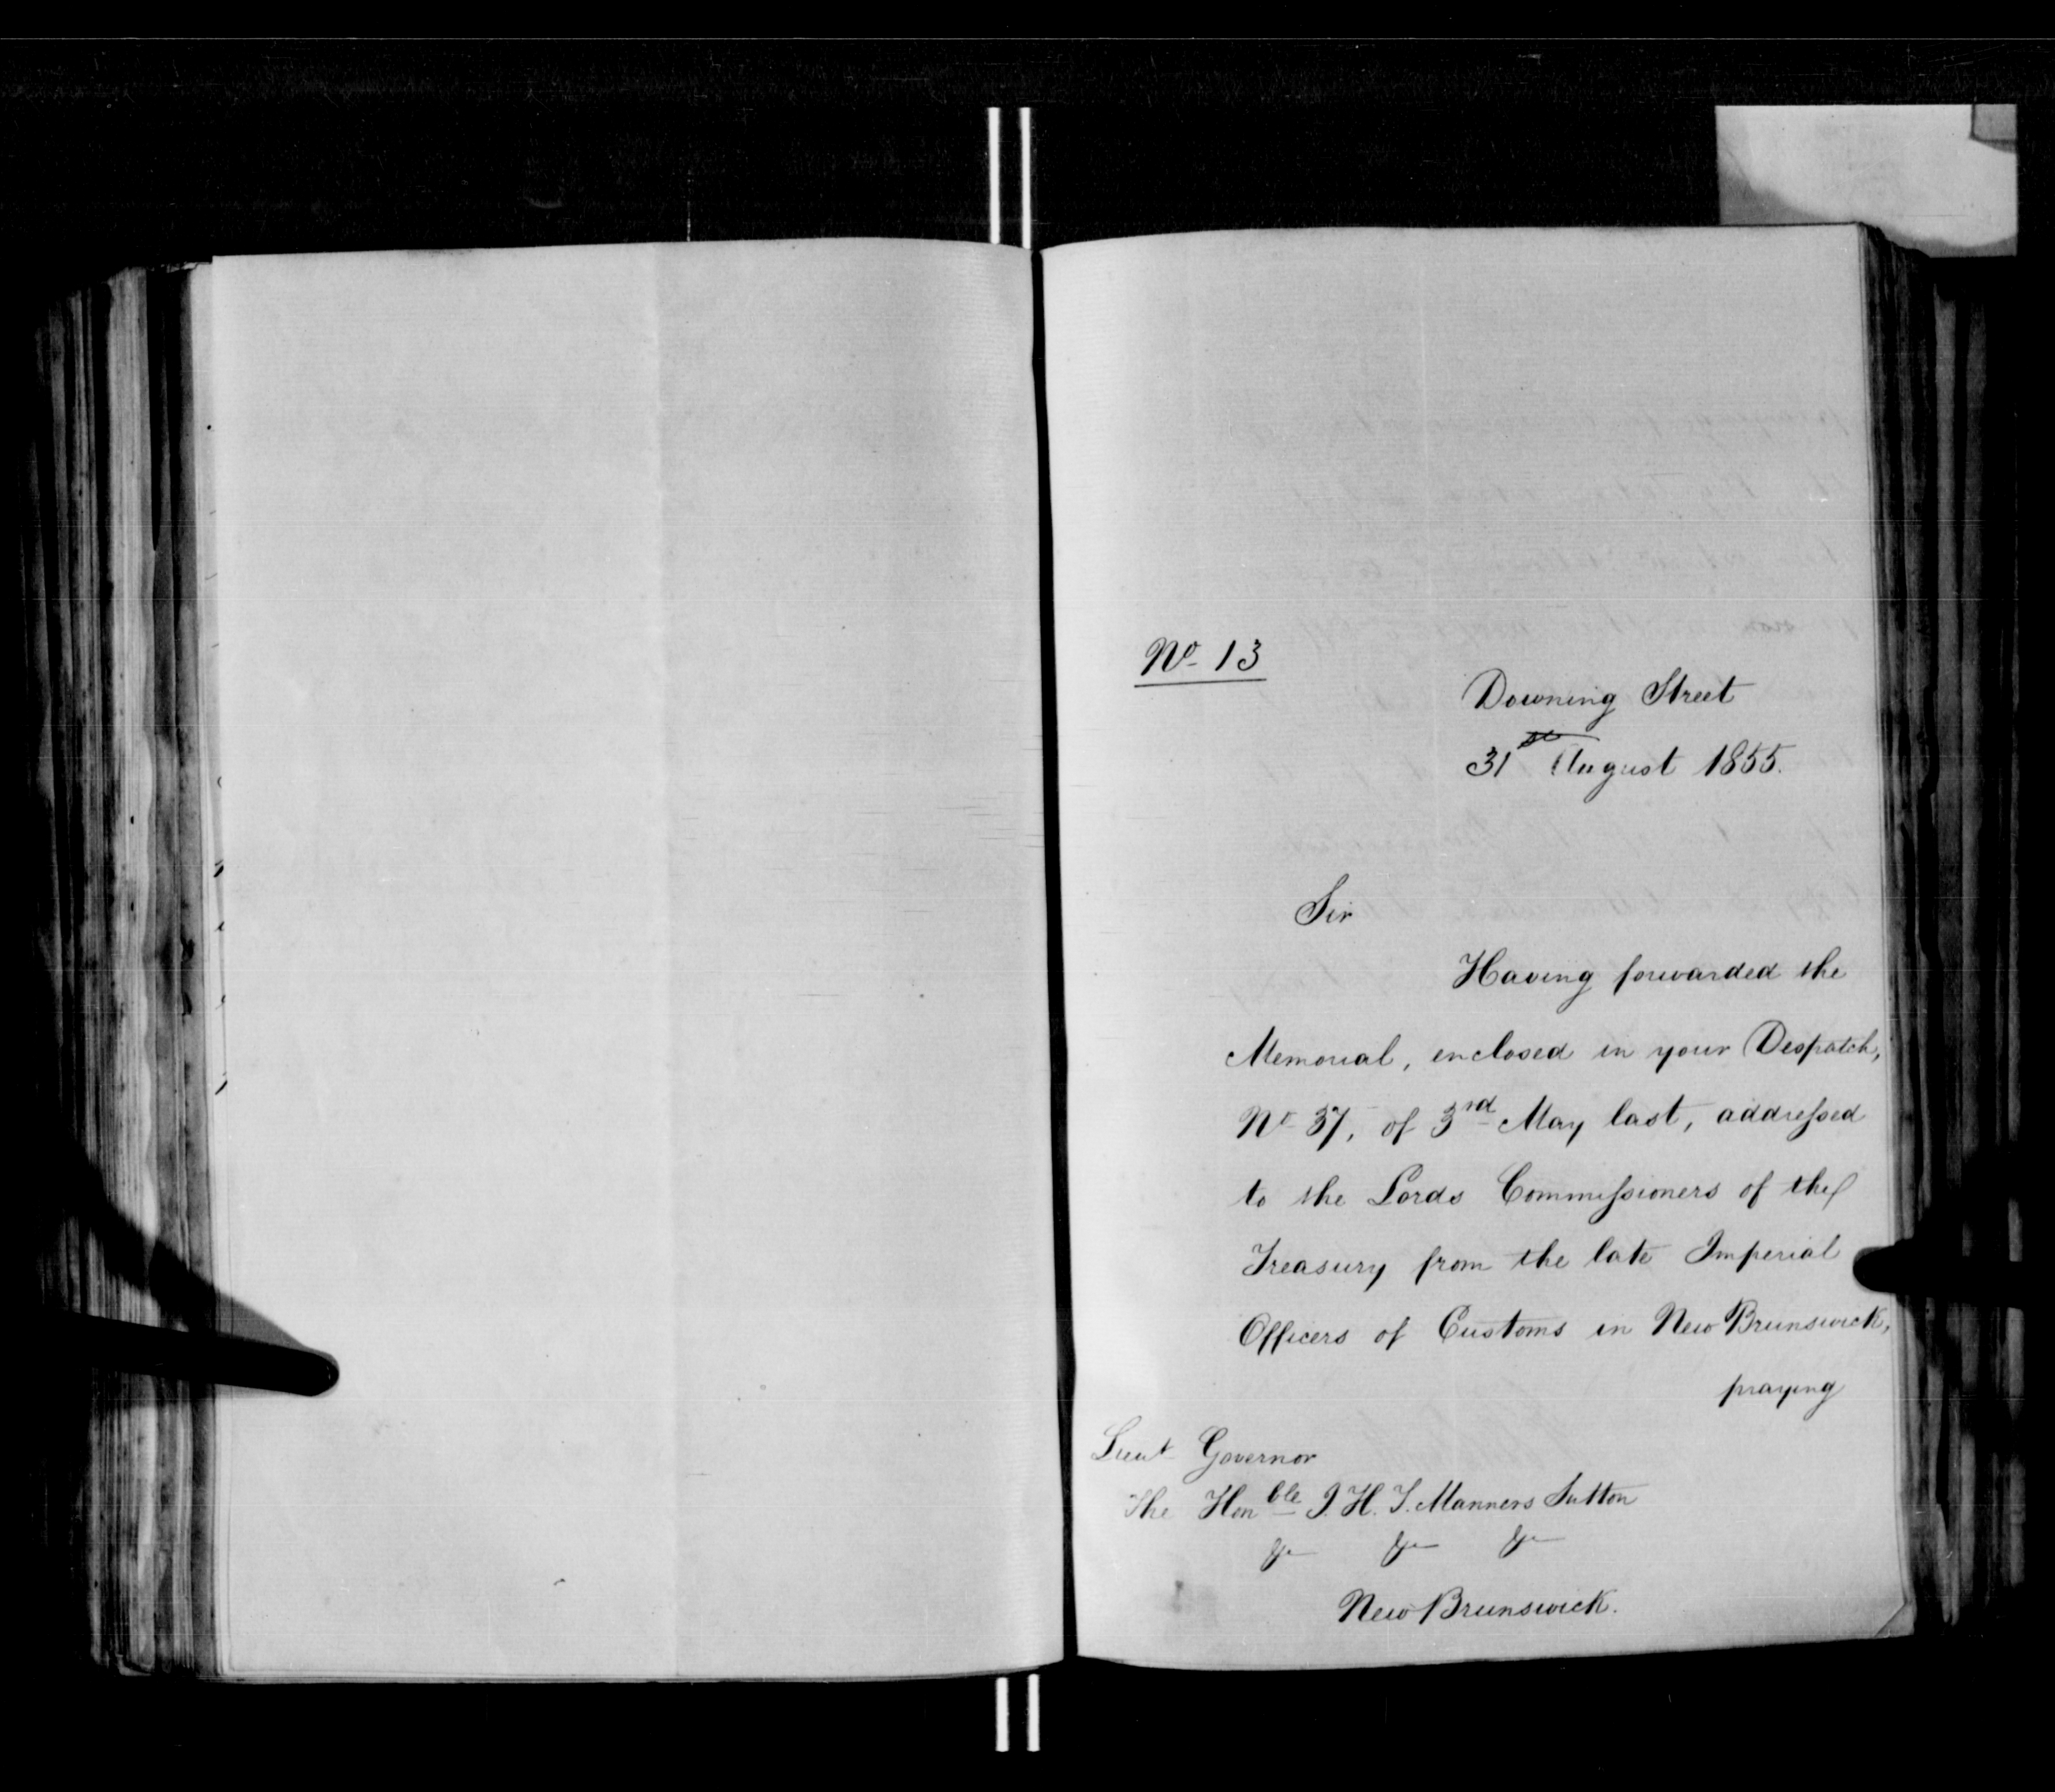 No 13
Downing Street
31st August 1855.
Sir
Having forwarded the
Memorial, enclosed in your Despatch,
No 37, of 3rd May last, addressed
to the Lords Commissioners of the
Treasury from the late Imperial
Officers of Customs in New Brunswick,
praying
Lieut Governor
The Honble J. H. T. Manners Sutton
&c &c &c
New Brunswick.